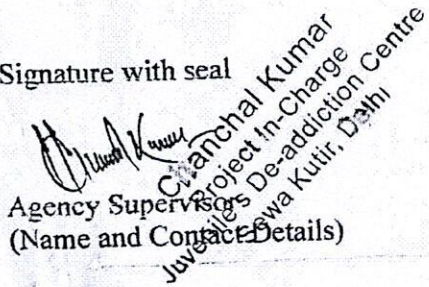 Signature with seal
Chanchal Kumar
Project In-Charge
Juvenile's De-addiction Centre
Sewa Kutir, Delhi
Agency Supervisor
(Name and Contact Details)